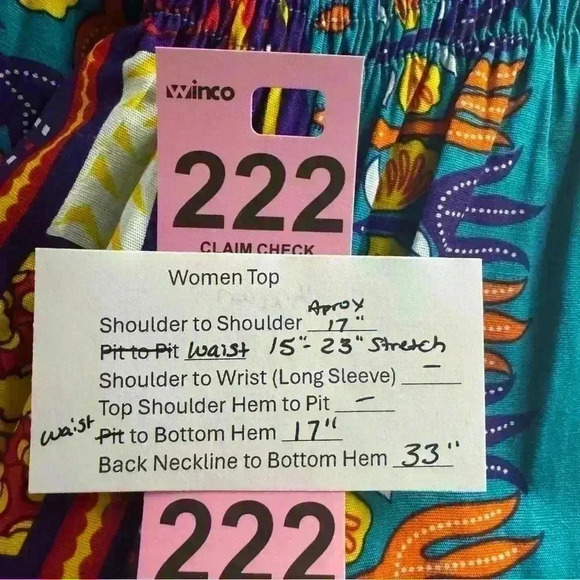 Winco
222
CLAIM CHECK
Women Top
Shoulder to Shoulder Aprox 17"
Pit to Pit waist 15"- 23" Stretch
Shoulder to Wrist (Long Sleeve) –
Top Shoulder Hem to Pit –
waist Pit to Bottom Hem 17"
Back Neckline to Bottom Hem 33"
222